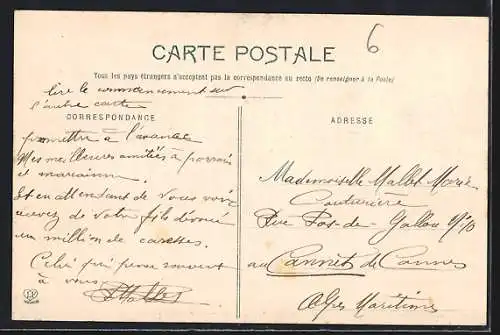 6
CARTE POSTALE
Tous les pays étrangers n'acceptent pas la correspondance au recto (Se renseigner à la Poste)
lire le commencement sur
l'autre carte
CORRESPONDANCE
ADRESSE
promettre à l'avance
Mes meilleures amitiés à parrain
et marraine.
Et en attendant de vous voir
recevez de votre fils dévoué
un million de caresses.
Celui qui pense souvent
à vous
Mallet
Mademoiselle Mallet Marie
Couturière
Rue Pas-de-Gallou
au Cannet de Cannes
Alpes Maritimes